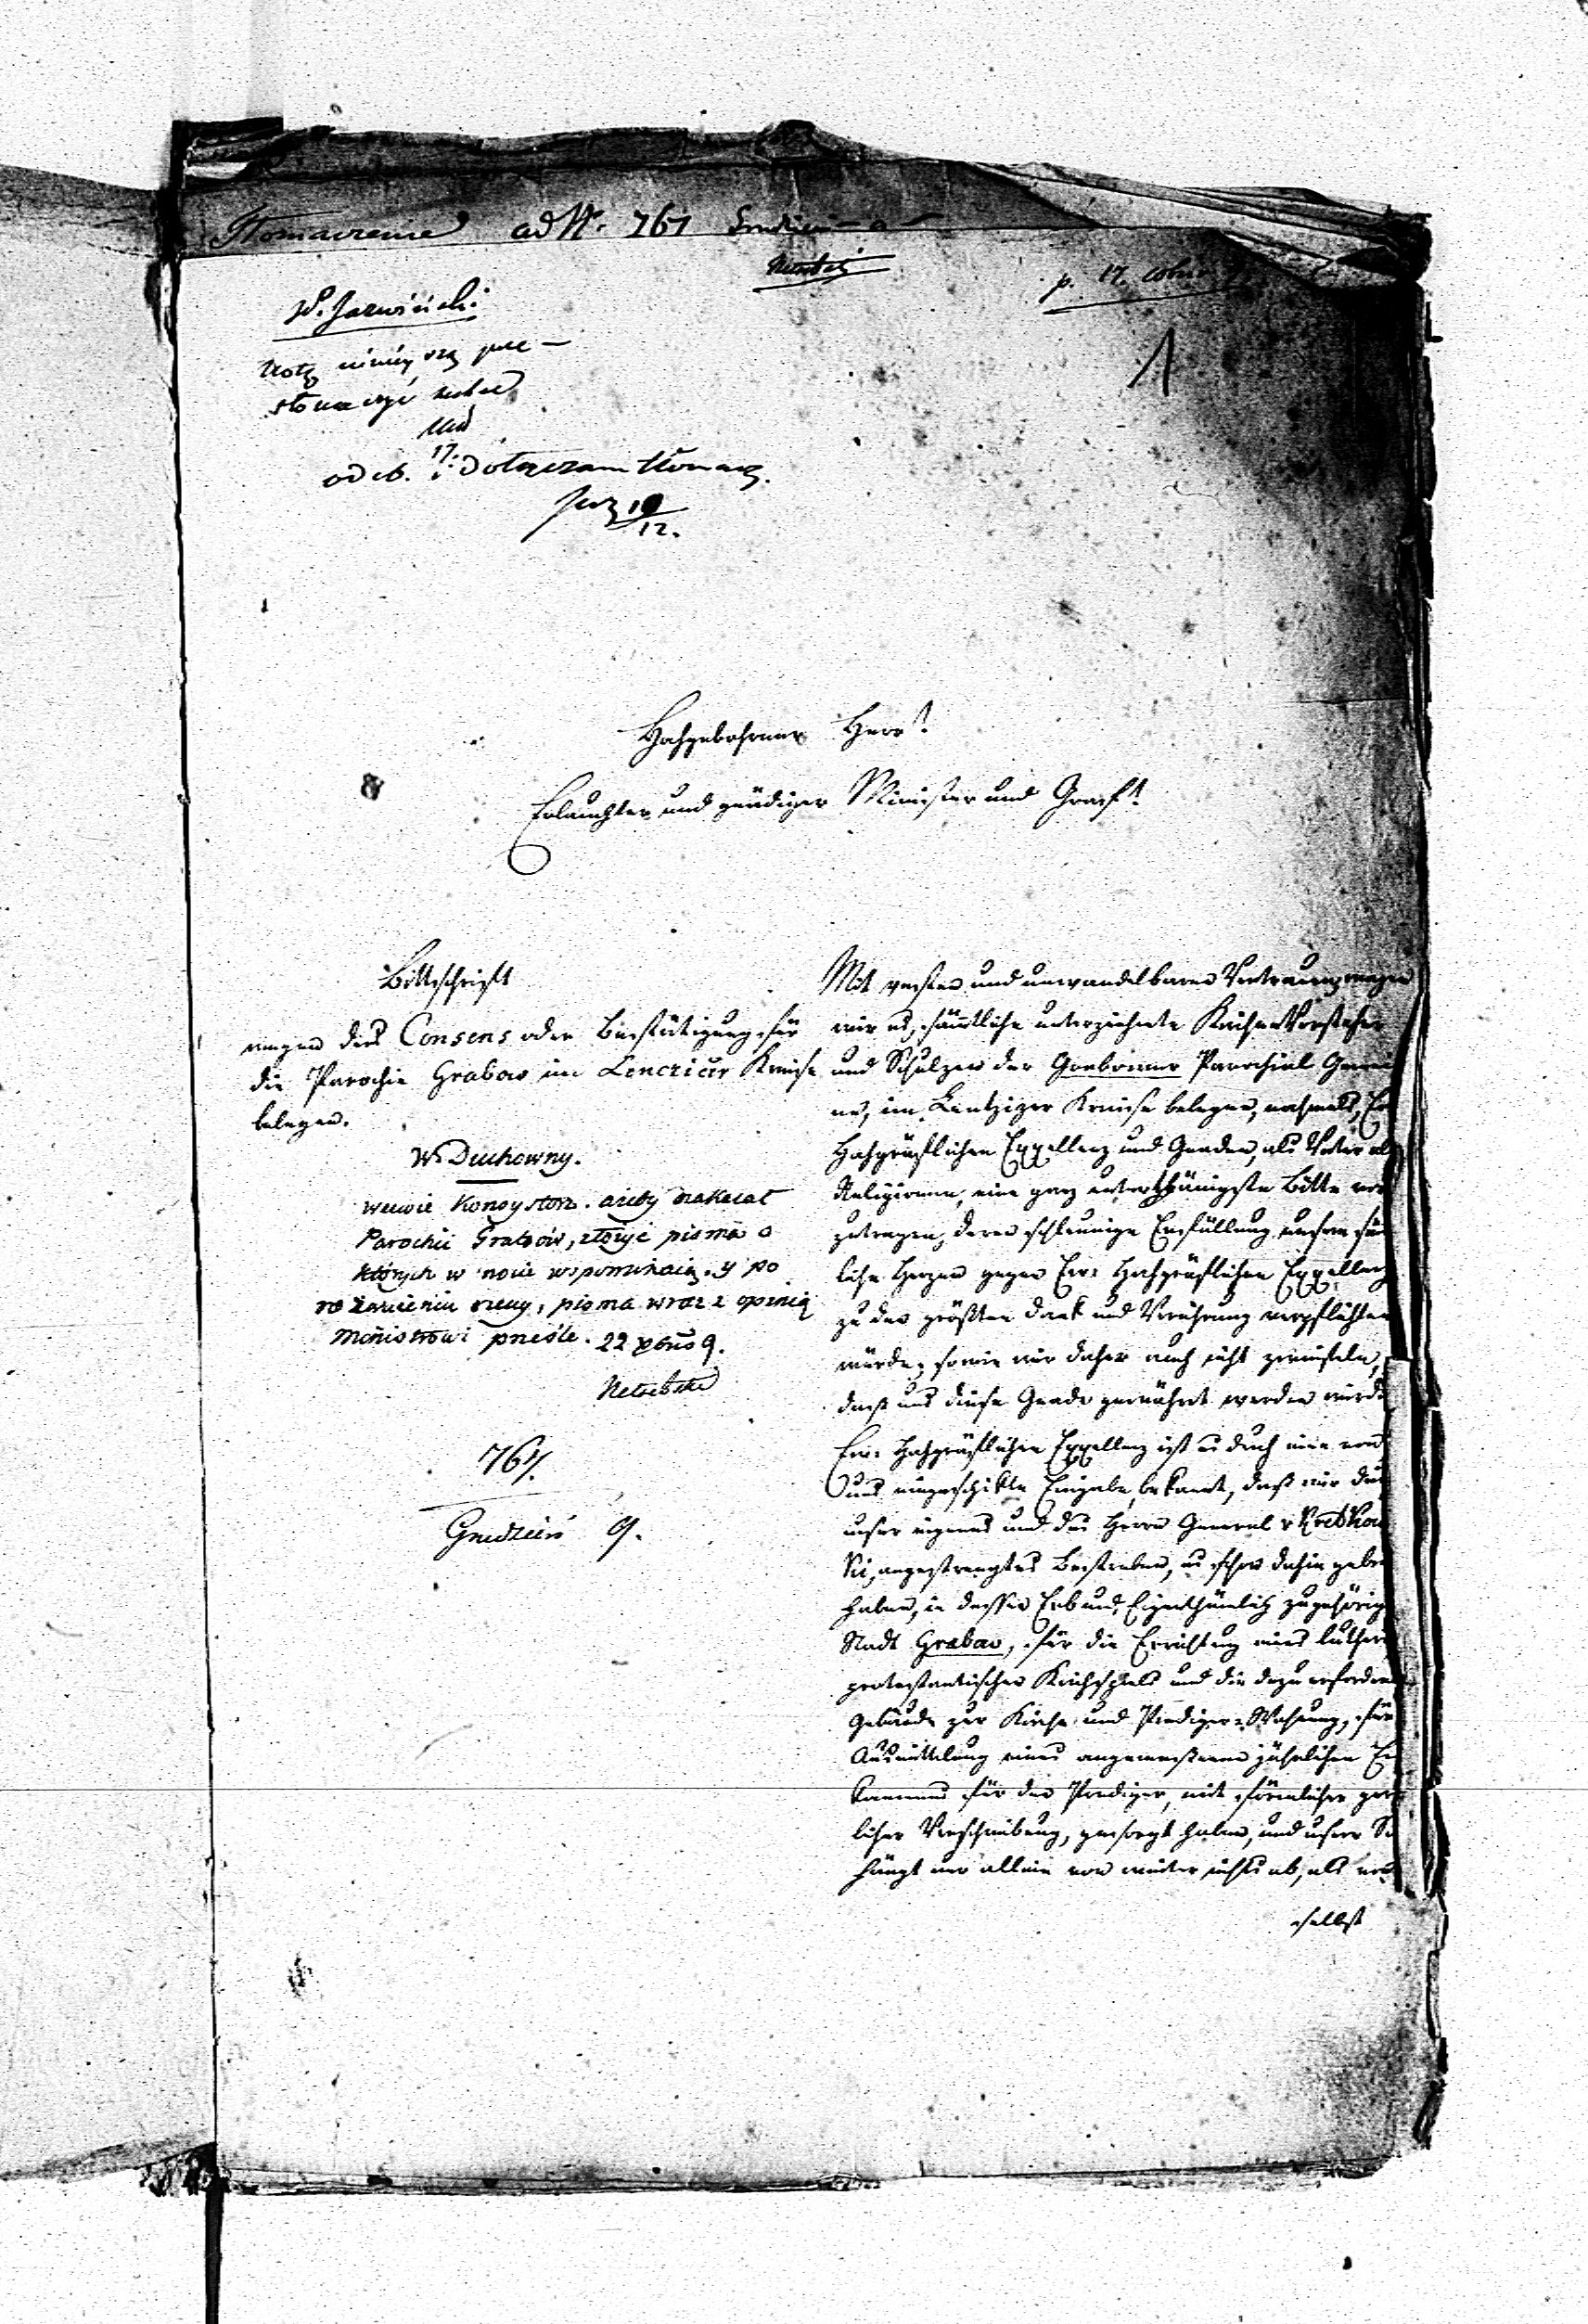 Tłomaczenie ad N. 761
p. 17.
1
Notę niniejszą prze-
odeb. 17. i dołączam tłomacz.
19/12.
Hochgebohrner Herr!
Erlauchter und gnädiger Minister und Graf!
Bittschrift
wegen des Consens oder Bestätigung für
die Parochie Grabow im Lenczicer Kreise
belegen.
W. Duchowny.
wezwie Konsystorz. ażeby nakazał
Parochii Grabów, złożyć pisma o
których w nocie wspominaią. y po
rozważeniu rzeczy, pisma wraz z opinią
Ministrowi prześle. 22 Xbris 9.
761.
Grudzień 9.
Mit vestem und unwandelbaren Vertrauen, wagen
wir es, sämtliche unterzeichnete Kirchen Vorsteher
und Schulzen der Grabower Parochial Gemei
ne, im Lentzizer Kreise belegen, nochmals, Ew
Hochgräflichen Exzellenz und Gnaden, als Vater al
Religionen, eine ganz unterthänigste Bitte vor
zutragen, deren schleunige Erfüllung unsere säm
liche Herzen gegen Ew: Hochgräflichen Exzellenz
zu der größten Dank und Verehrung verpflichten
würde; sowie wir daher auch nicht zweifeln,
daß uns diese Gnade gewährt werden wird.
Ew: Hochgräflichen Exzellenz ist es durch eine von
uns eingeschikte Eingabe, bekannt, daß wir durch
unser eigenes und des Herrn General v Kretkow
ski, angestrengtes Bestreben, es schon dahin gebra
haben, in dessen Erb und Eigenthümlich zugehörige
Stadt Grabow, für die Errichtung eines luther
protestantischen Kirchspiels und die dazu erforder
Gebäude zur Kirche und Prediger-Wohnung, für
Ausmittelung eines angemeßenen jährlichen Ein
kommens für den Prediger, mit förmlicher geri
licher Verschreibung, gesorgt haben, und unsere
hängt nur allein von weiter nichts ab, als von
selbst